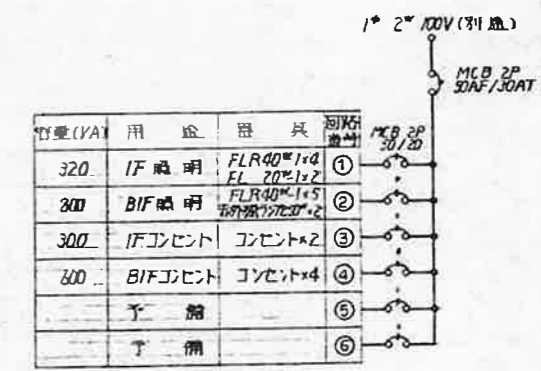 1φ 2W 100V (別途)
MCB 2P
50AF/30AT
容量(VA) 用 途 器 具 回路番号
MCB 2P
30/20
320 1F 照 明 FLR40W-1x4 ①
FL 20W-1x2
B1F 照 明 FLR40W-1x5 ②
300 1Fコンセント コンセントx2 ③
600 B1Fコンセント コンセントx4 ④
予 備 ⑤
予 備 ⑥